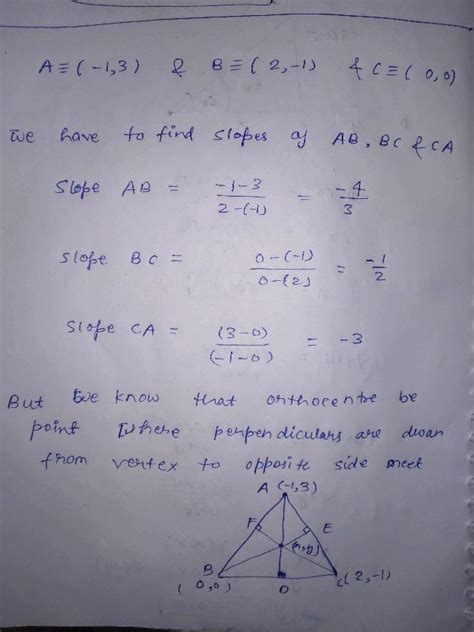 A ≡ (-1,3) & B ≡ (2,-1) & C ≡ (0,0)
We have to find slopes of AB, BC & CA
Slope AB = -1-3 / 2-(-1) = -4/3
Slope BC = 0-(-1) / 0-(2) = -1/2
Slope CA = (3-0) / (-1-0) = -3
But we know that orthocentre be
point where perpendiculars are drwan
from vertex to opposite side meet
A (-1,3)
F
E
(x,y)
B
(0,0)
D
C(2,-1)